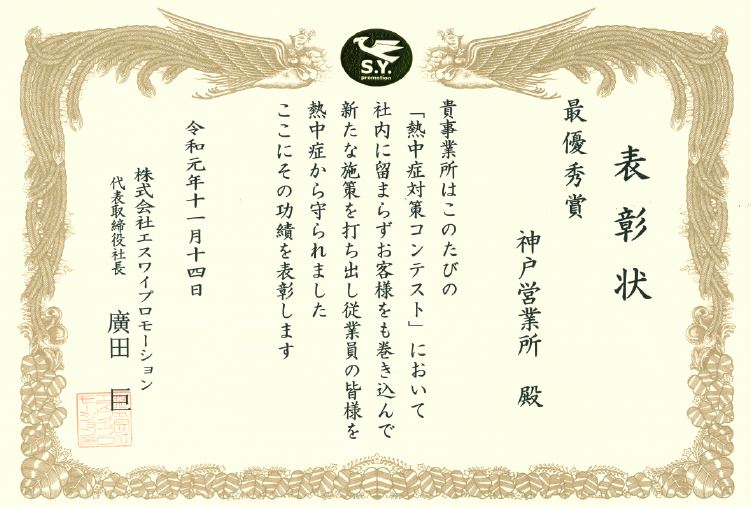 S.Y.
promotion
表彰状
最優秀賞
神戸営業所 殿
貴事業所はこのたびの
「熱中症対策コンテスト」において
社内に留まらずお客様をも巻き込んで
新たな施策を打ち出し従業員の皆様を
熱中症から守られました
ここにその功績を表彰します
令和元年十一月十四日
株式会社エスワイプロモーション
代表取締役社長 廣田 巨